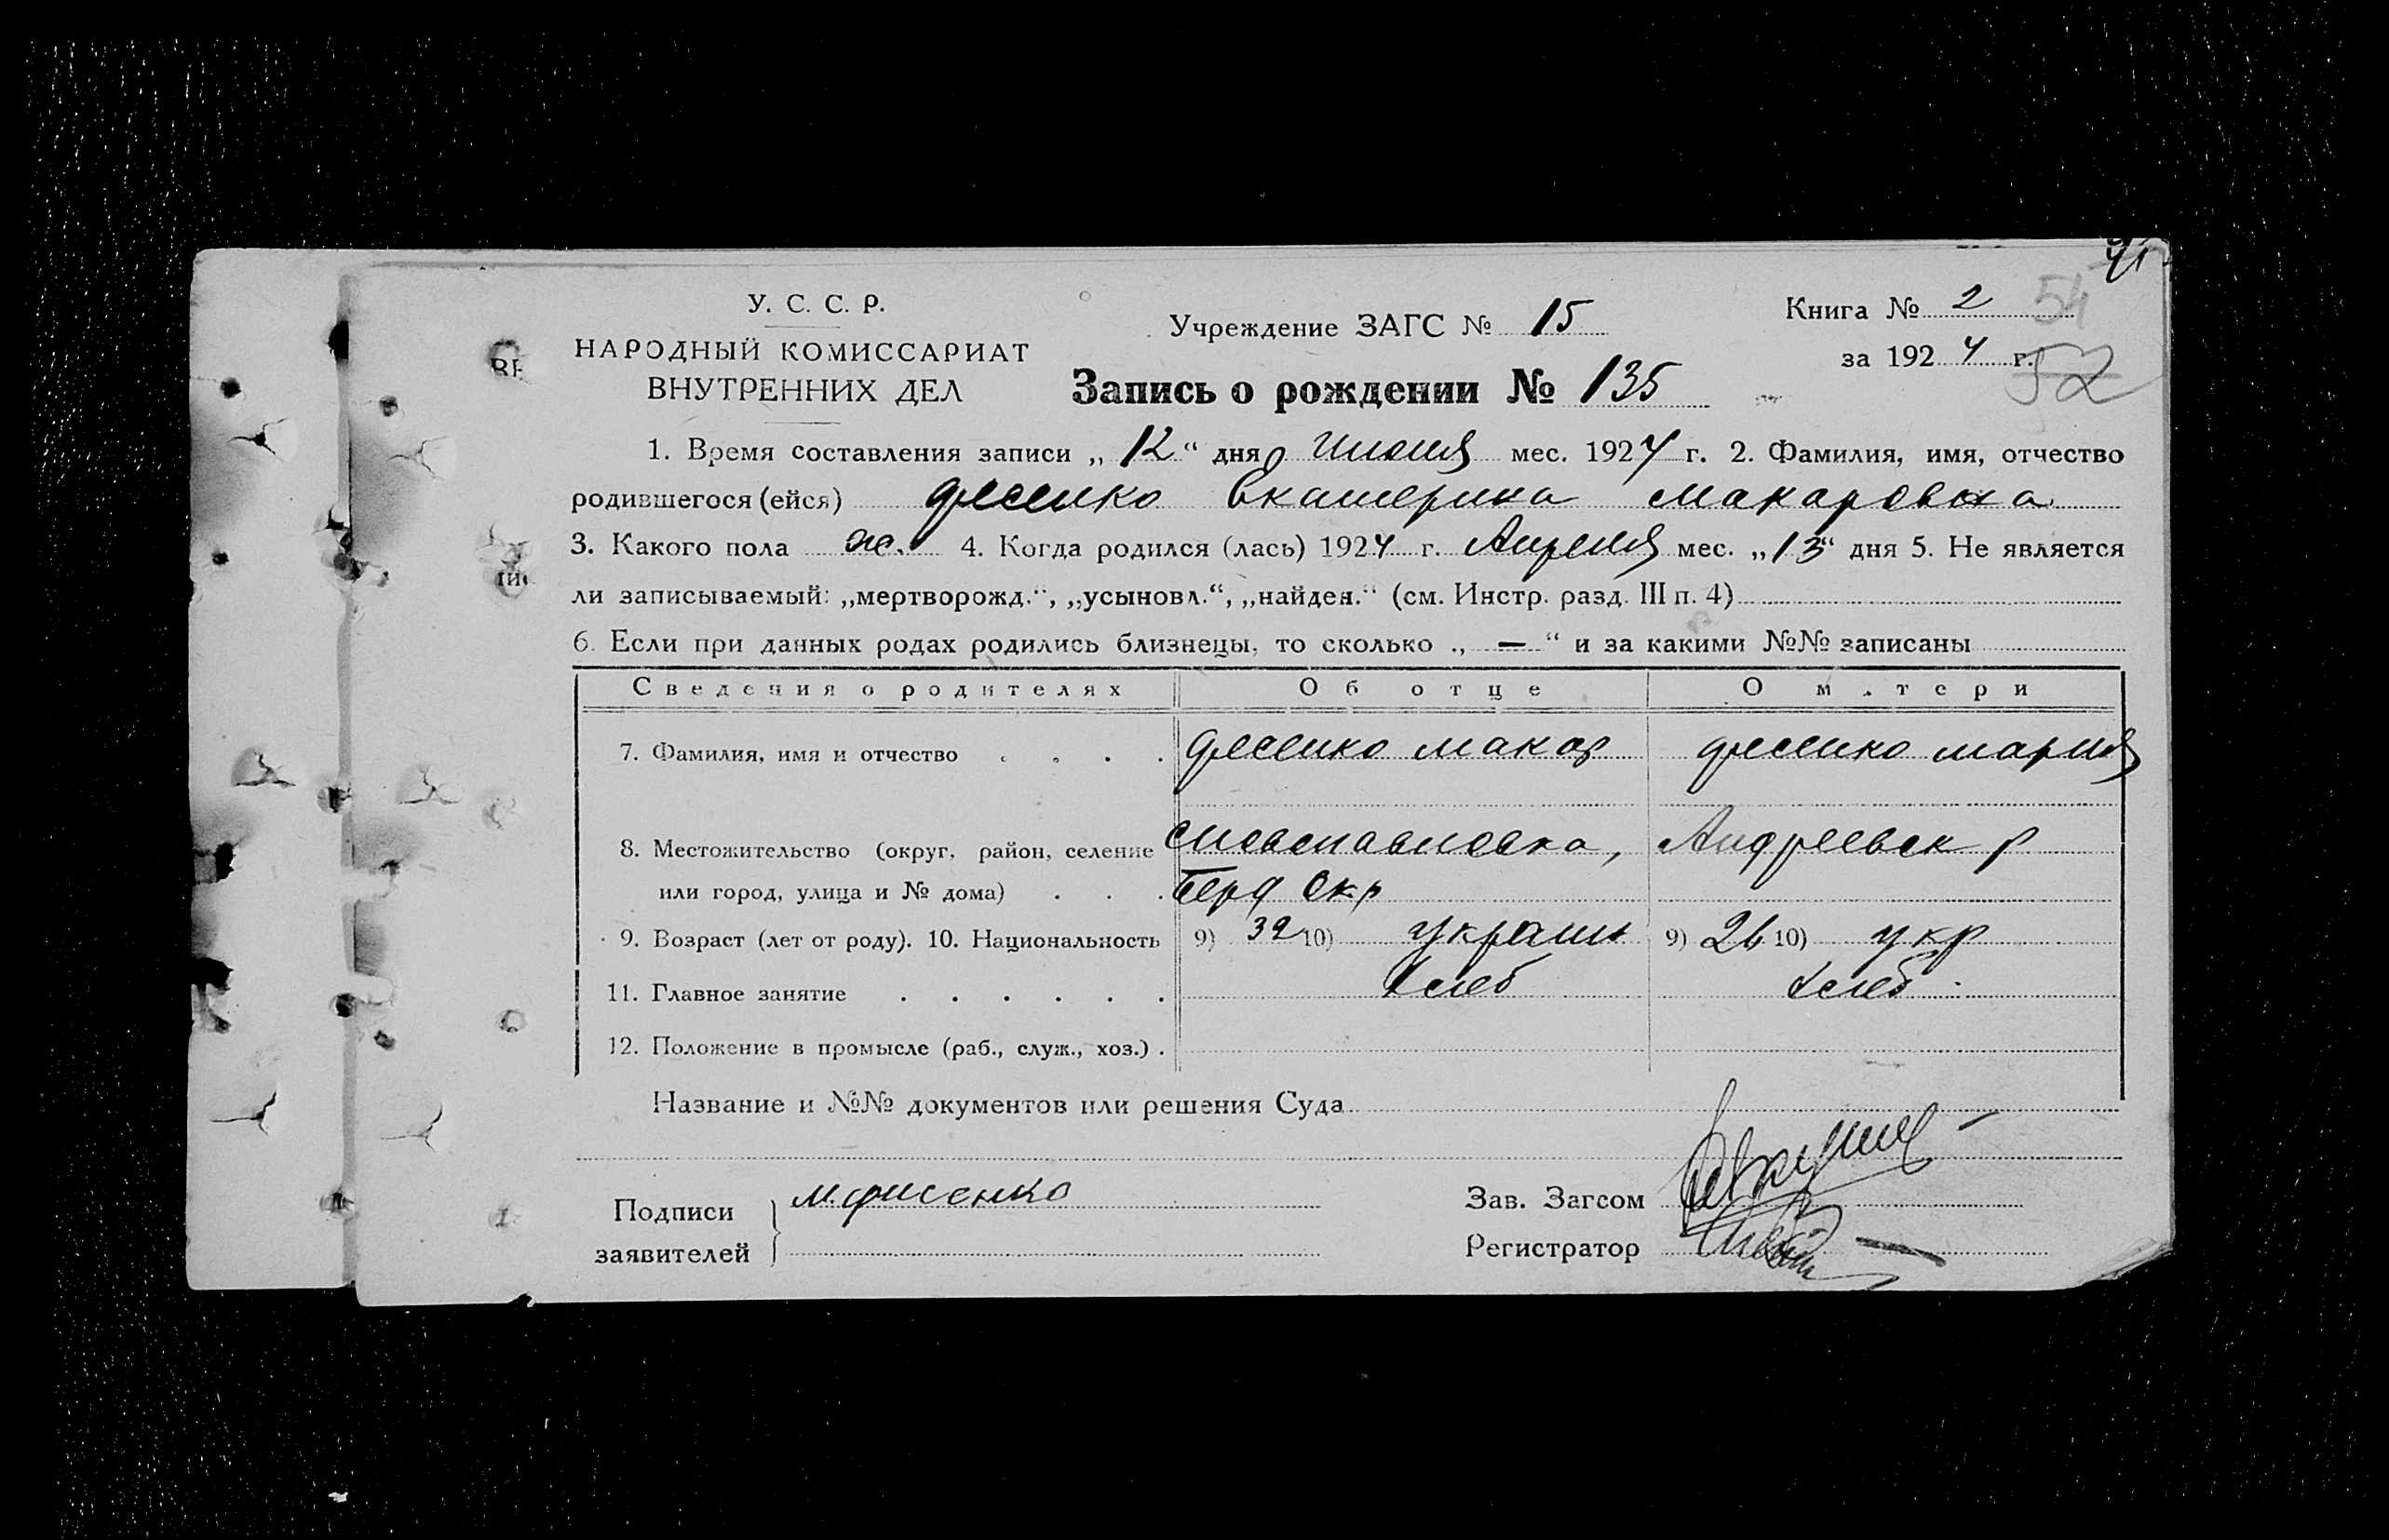 91
У. С. С. Р.
НАРОДНЫЙ КОМИССАРИАТ
ВНУТРЕННИХ ДЕЛ
Учреждение ЗАГС № 15
Книга № 2 54
за 1924 г. 52
Запись о рождении № 135
1. Время составления записи „ 12 “ дня Июня мес. 1924 г. 2. Фамилия, имя, отчество
родившегося (ейся) Фесенко Екатерина Макаровна
3. Какого пола ж. 4. Когда родился (лась) 1924 г. Апреля мес. „13“ дня 5. Не является
ли записываемый: „мертворожд.“, „усыновл.“, „найден.“ (см. Инстр. разд. III п. 4)
6. Если при данных родах родились близнецы, то сколько „ — “ и за какими №№ записаны
Сведения о родителях Об отце О матери
7. Фамилия, имя и отчество . . . . Фесенко Макар Фесенко Мария
8. Местожительство (округ, район, селение Новопавловка, Андреевск р
или город, улица и № дома) . . . Берд Окр
9. Возраст (лет от роду). 10. Национальность 9) 32 10) украин 9) 26 10) укр
11. Главное занятие . . . . . . Хлеб Хлеб
12. Положение в промысле (раб., служ., хоз.) .
Название и №№ документов или решения Суда
Подписи М. Фисенко
заявителей
Зав. Загсом
Регистратор